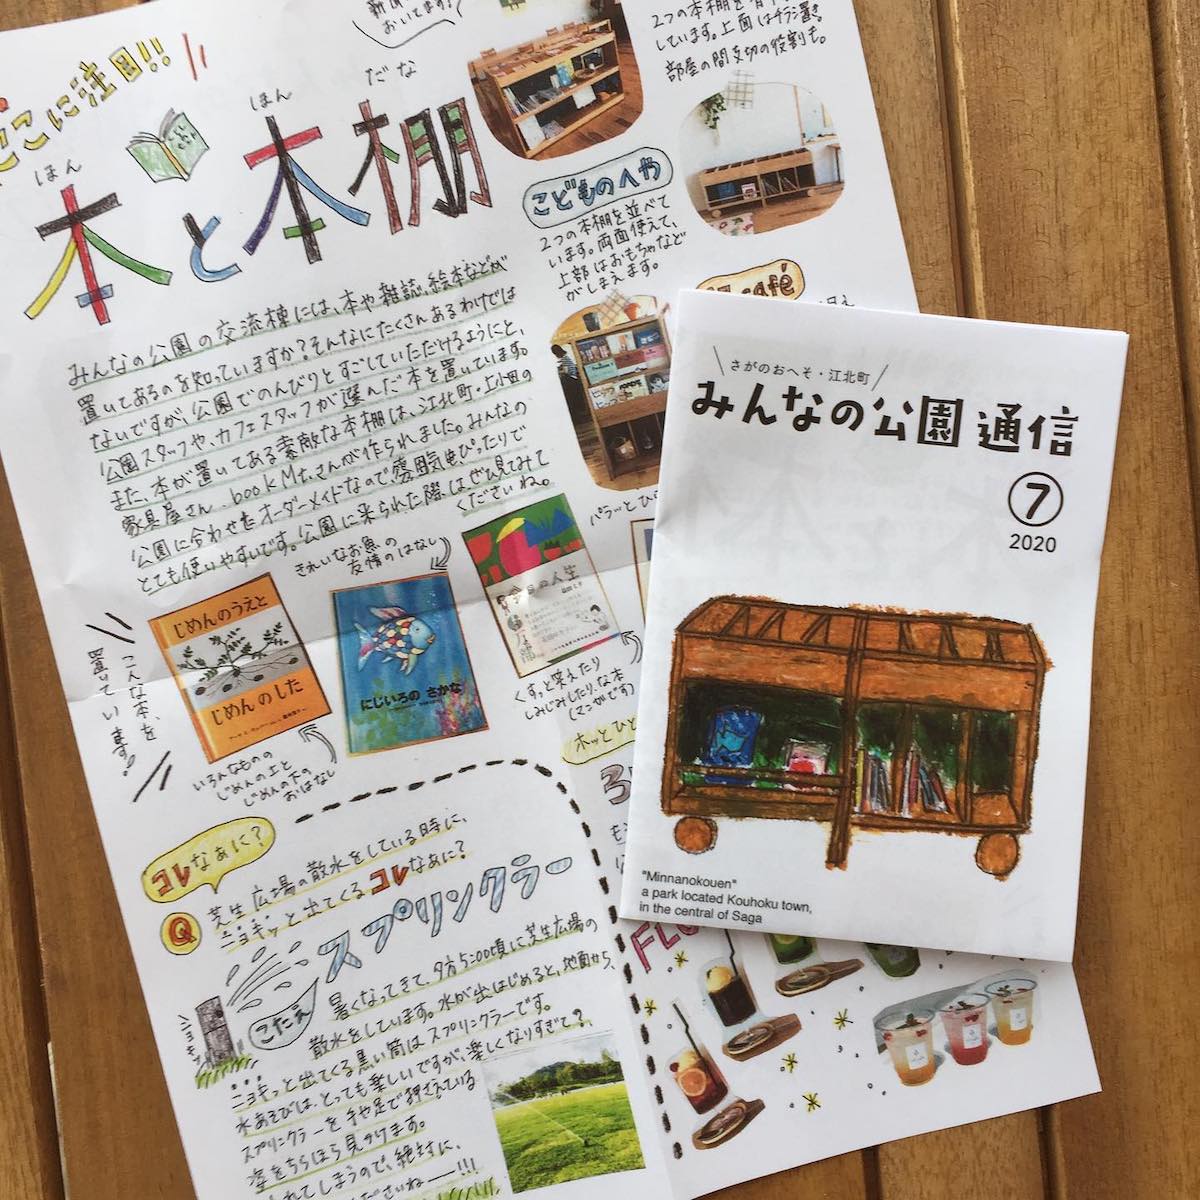 ここに注目!!
ほん
ほん
だな
本と本棚
おいてます!
2つの本棚を
しています。上面はチラシ置き
部屋の間支切の役割も。
こどものへや
2つの本棚を並べて
います。両面使えて、
上部はおもちゃなど
がしまえます。
café
みんなの公園の交流棟には、本や雑誌、絵本などが
置いてあるのを知っていますか?そんなにたくさんあるわけでは
ないですが、公園でのんびりとすごしていただけるようにと、
公園スタッフや、カフェスタッフが選んだ本を置いています。
また、本が置いてある素敵な本棚は、江北町・上小田の
家具屋さん、book Mt.さんが作られました。みんなの
公園に合わせたオーダーメイドなので、雰囲気もぴったりで
とても使いやすいです。公園に来られた際はぜひ見てみて
くださいね。
パラッとひ
こんな本、を
置いています!
じめんのうえと
じめんのした
いろんなものの
じめんの上と
じめんの下の
おはなし
きれいなお魚の
友情のはなし
にじいろの さかな
の人生
くすっと笑えたり
しみじみしたり、な本
(マンガです)
ホッとひと
コレなぁに?
Q
芝生広場の散水をしている時に、
ニョキッと出てくるコレなあに?
スプリンクラー
ニョキッ
こたえ
暑くなってきて、夕方5:00頃に芝生広場の
散水をしています。水が出はじめると、地面から、
ニョキっと出てくる黒い筒はスプリンクラーです。
水あそびは、とっても楽しいですが、楽しくなりすぎて?
スプリンクラーを手や足で押されている
姿をちらほら見かけます。
れてしまうので、絶対に、
ださいねー!!!
さがのおへそ・江北町
みんなの公園 通信
7
2020
"Minnanokouen"
a park located Kouhoku town,
in the central of Saga
FL